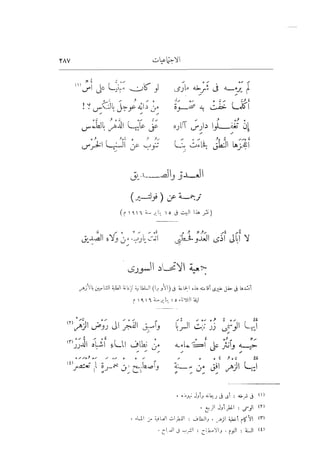 الاجتماعيات
٢٨٧
لم يَرُمْـه فى شَرْخِه
لو كان مبنيًّا على أُسِّ (١)
أكلّما خفّت به صَحْوَةٌ
من دائه عُوجِل بالنُّكْسِ ؟!
إنْ تُغفِلوا دارسَ آثاره
عَفَّى عليها الدّهرُ بالطَّمْسِ
أعجزها النطقُ فجاءت بنا
تَنُوبُ عن ألسُنِها الخُرْسِ
العدو والصديق
ترجمة عن ( فولتير )
( نشر هذا البيت فى ١٥ يناير سنة ١٩١٦ م )
لا أُبالى أذى العَدُوِّ فحُطْنِى
أنتَ ياربِّ من ولاء الصَّديقِ
جمعية الاتحاد السورى
أنشدها فى حفل خيرى أقامته هذه الجماعة فى ( الأوبرا ) السلطانية لإعانة الطلبة الشاميين بالأزهر
ليلة الثلاثاء ١٥ يناير سنة ١٩١٦ م
أيّها الوَسْمِىُّ زُرْ نَبْتَ الرُّبَا
واسبِق الفجرَ إلى رَوْضِ الزَّهَرْ (٢)
حَيِّـه وانثُر على أكمامِه
من نِطافِ الماءِ أشباهَ الدُّرَرْ (٣)
أيّها الزَّهْرُ أفِقْ من سِنَةٍ
واصطَبِحْ من خمرةٍ لم تُعتَصَرْ (٤)
(١) فى شرخه : أى فى ريعانه وأول
(٢) الوسمى : المطر أول الربيع .
(٣) الأكمام أغطية الزهر . والنطاف : القطرات الصافية من المياه .
(٤) السنة : النوم . والاصطباح : الشرب فى الصباح .